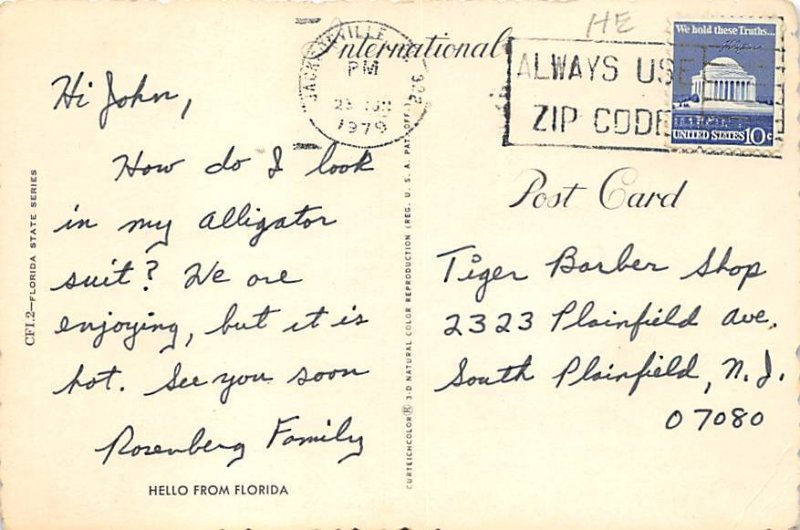 HE
International
JACKSONVILLE
PM
1979
322
ALWAYS USE
ZIP CODE
We hold these Truths...
UNITED STATES 10c
Post Card
Hi John,
How do I look
in my alligator
suit? We are
enjoying, but it is
hot. See you soon
Rosenberg Family
HELLO FROM FLORIDA
CFI.2—FLORIDA STATE SERIES
CURTEICHCOLOR® 3-D NATURAL COLOR REPRODUCTION (REG. U. S. A. PAT. OFF.)
Tiger Barber Shop
2323 Plainfield Ave.
South Plainfield, N.J.
07080